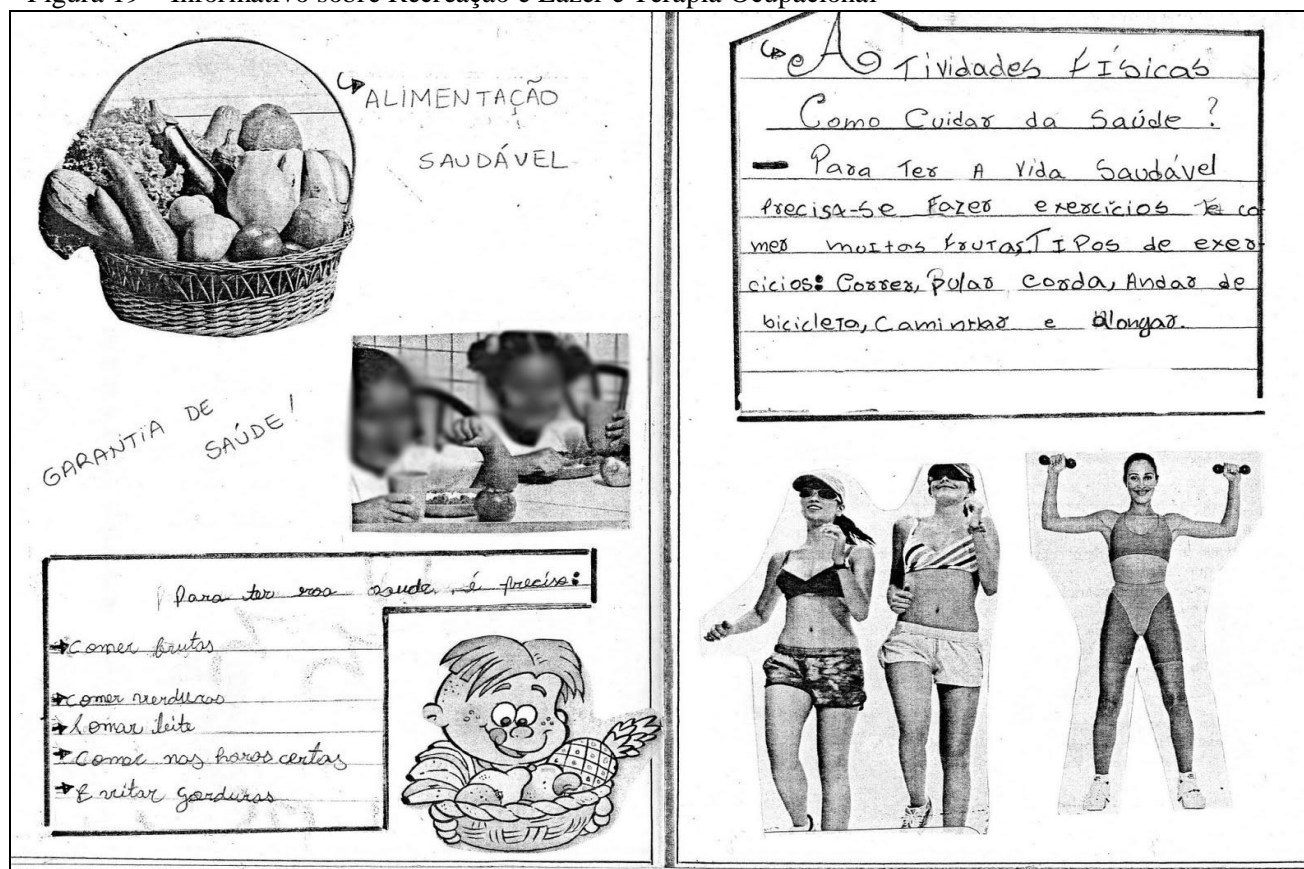 Figura 19 – Informativo sobre Recreação e Lazer e Terapia Ocupacional
ALIMENTAÇÃO
SAUDÁVEL
GARANTIA DE
SAÚDE!
Para ter essa saude, é preciso:
Comer frutas
Comer verduras
Tomar leite
Comer nas horas certas
Evitar gorduras
ATividades FÍsicas
Como Cuidar da Saúde?
– Para Ter A Vida Saudável
Precisa-se Fazer exercicios e co
mer muitas FruTas. TIPos de exer
cicios: Correr, Pular Corda, Andar de
bicicleTa, Caminhar e Alongar.